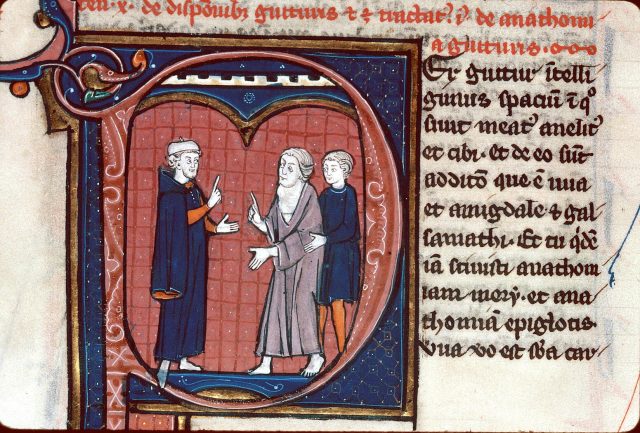 de dispoſitiōibȝ gutturis et tractat' de anathomi
a gutturis.
Per guttur ītelli
gimus spaciū ī q°
sunt meat' anelit'
et cibi. et de eo sūt
additōn que ē uua
et amigdale et gal
samathi. Et tu q̇dē
iā sciuisti anathom
iam mery. et ana
thomiā epiglotis.
Vua uo est sba car